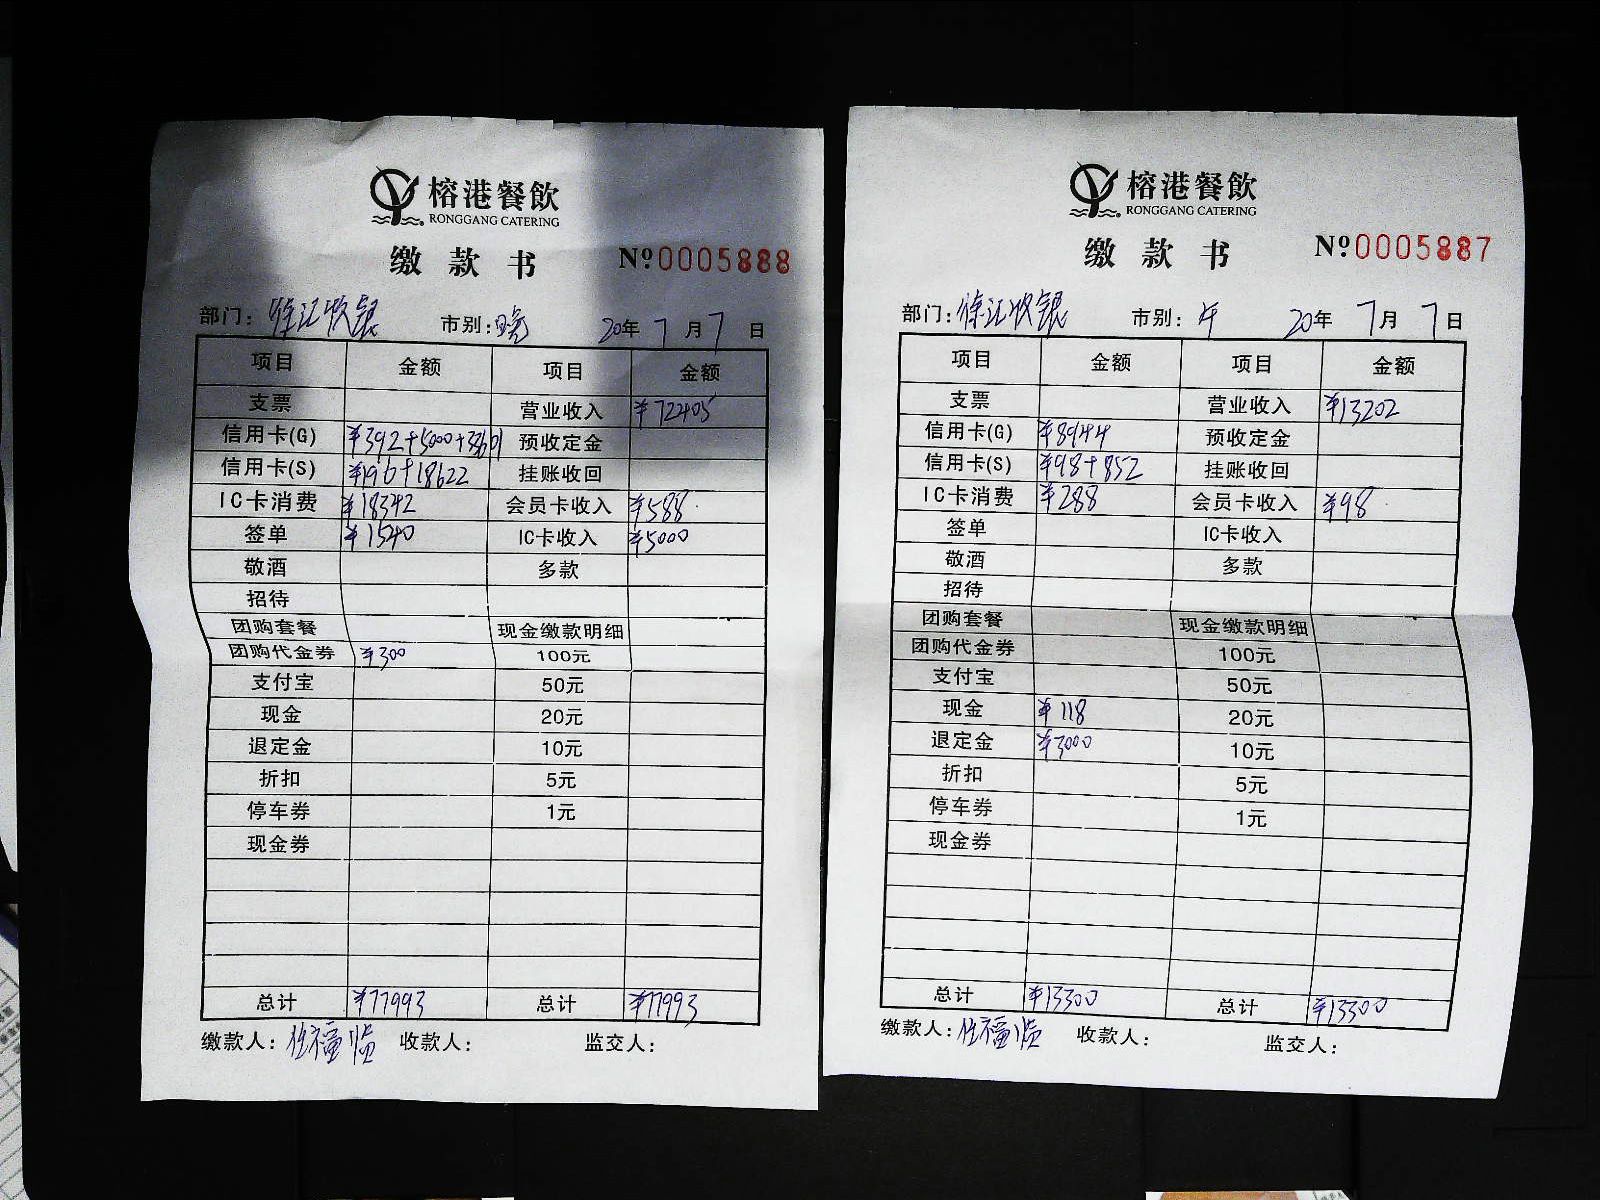 榕港餐飲
RONGGANG CATERING
缴款书 №0005888
部门: 徐汇收银 市别: 晚 20年 7月 7日
项目 金额 项目 金额
支票 营业收入 ¥72405
信用卡(G) ¥392+5000+33601 预收定金
信用卡(S) ¥196+18622 挂账收回
IC卡消费 ¥18342 会员卡收入 ¥588
签单 ¥1540 IC卡收入 ¥5000
敬酒 多款
招待
团购套餐 现金缴款明细
团购代金券 ¥300 100元
支付宝 50元
现金 20元
退定金 10元
折扣 5元
停车券 1元
现金券
总计 ¥77993 总计 ¥77993
缴款人: 收款人: 监交人:
榕港餐飲
RONGGANG CATERING
缴款书 №0005887
部门: 徐汇收银 市别: 午 20年 7月 7日
项目 金额 项目 金额
支票 营业收入 ¥13202
信用卡(G) ¥8944 预收定金
信用卡(S) ¥98+852 挂账收回
IC卡消费 ¥288 会员卡收入 ¥98
签单 IC卡收入
敬酒 多款
招待
团购套餐 现金缴款明细
团购代金券 100元
支付宝 50元
现金 ¥118 20元
退定金 ¥3000 10元
折扣 5元
停车券 1元
现金券
总计 ¥13300 总计 ¥13300
缴款人: 收款人: 监交人: